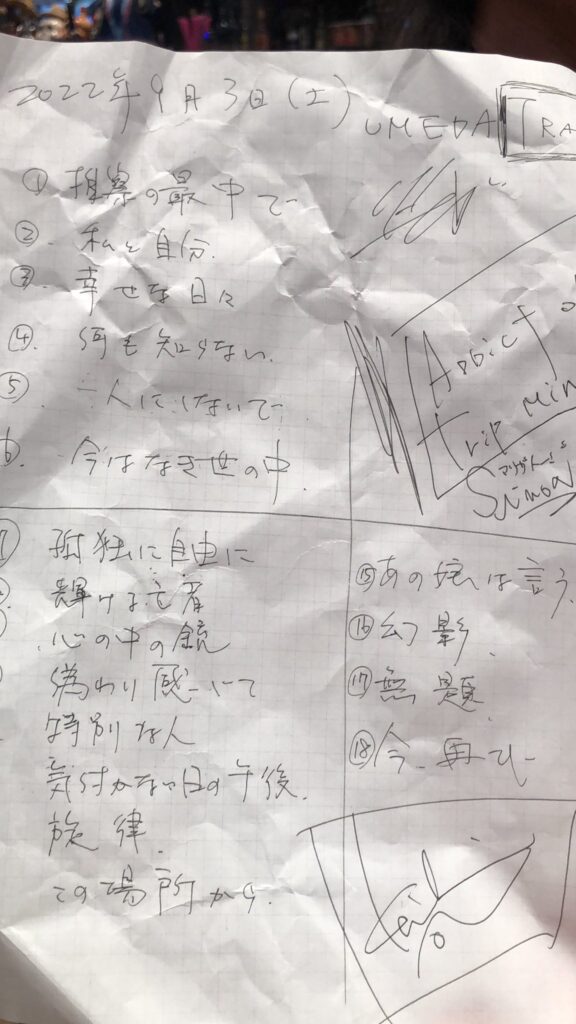 2022年9月3日(土) UMEDA TRA
① 模索の最中で
② 私と自分.
③ 幸せな日々
④. 何も知らない.
⑤ 一人にしないで.
6. 今はなき世の中.
孤独に自由に
輝ける亡者
心の中の銃
偽わり感じて
特別な人
気付かない日の午後.
旋律.
この場所から.
⑮あの娘は言う.
⑯幻影.
⑰無題
⑱今.再び
Addict
Trip Min